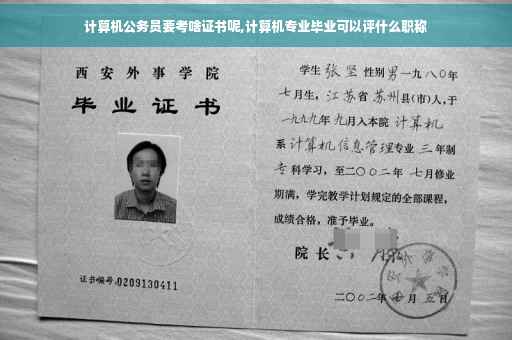 计算机公务员要考啥证书呢,计算机专业毕业可以评什么职称
西安外事学院
毕业证书
证书编号:0209130411
学生 张坚 性别 男 一九八〇年
七月生, 江苏省 苏州 县(市)人,于
一九九九年 九月入本院 计算机
系 计算机信息管理 专业 三 年制
专 科学习, 至二〇〇二年 七月修业
期满, 学完教学计划规定的全部课程,
成绩合格, 准予毕业。
院长
二〇〇二年 月 五日